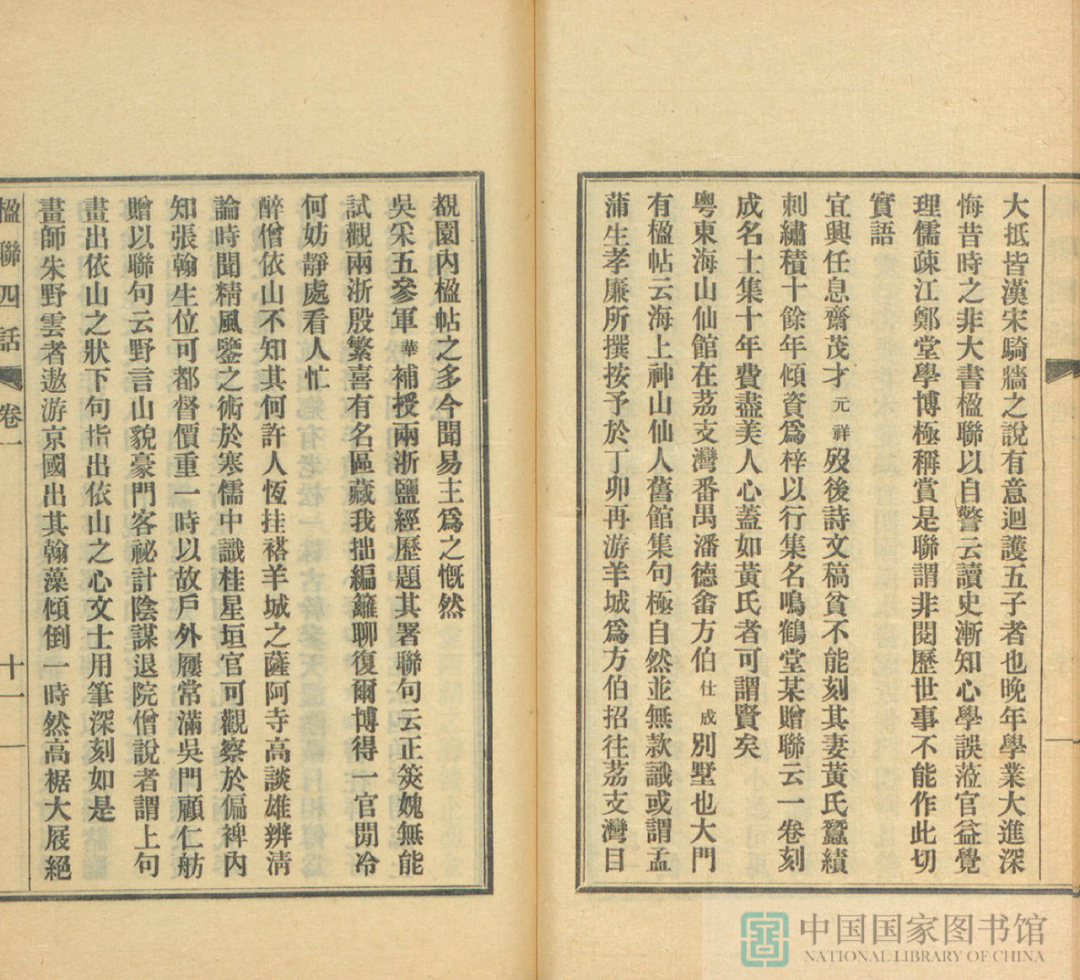 大抵皆漢宋騎牆之說有意迴護五子者也晚年學業大進深
悔昔時之非大書楹聯以自警云讀史漸知心學誤蒞官益覺
理儒疎江鄭堂學博極稱賞是聯謂非閱歷世事不能作此切
實語
宜興任息齋茂才元祥歿後詩文稿貧不能刻其妻黃氏蠶績
刺繡積十餘年傾資爲梓以行集名鳴鶴堂某贈聯云一卷刻
成名士集十年費盡美人心蓋如黃氏者可謂賢矣
粵東海山仙館在荔支灣番禺潘德畬方伯仕成別墅也大門
有楹帖云海上神山仙人舊館集句極自然並無款識或謂孟
蒲生孝廉所撰按予於丁卯再游羊城爲方伯招往荔支灣目
覩園內楹帖之多今聞易主爲之慨然
吳采五參軍華補授兩浙鹽經歷題其署聯句云正筴媿無能
試觀兩浙殷繁喜有名區藏我拙編籬聊復爾博得一官閒冷
何妨靜處看人忙
醉僧依山不知其何許人恆挂褡羊城之薩阿寺高談雄辨清
論時聞精風鑒之術於寒儒中識桂星垣官可觀察於偏裨內
知張翰生位可都督價重一時以故戶外屨常滿吳門顧仁舫
贈以聯句云野言山貌豪門客祕計陰謀退院僧說者謂上句
畫出依山之狀下句指出依山之心文士用筆深刻如是
畫師朱野雲者遨游京國出其翰藻傾倒一時然高椐大屐絕
楹聯四話 卷一 十一
中国国家图书馆
NATIONAL LIBRARY OF CHINA